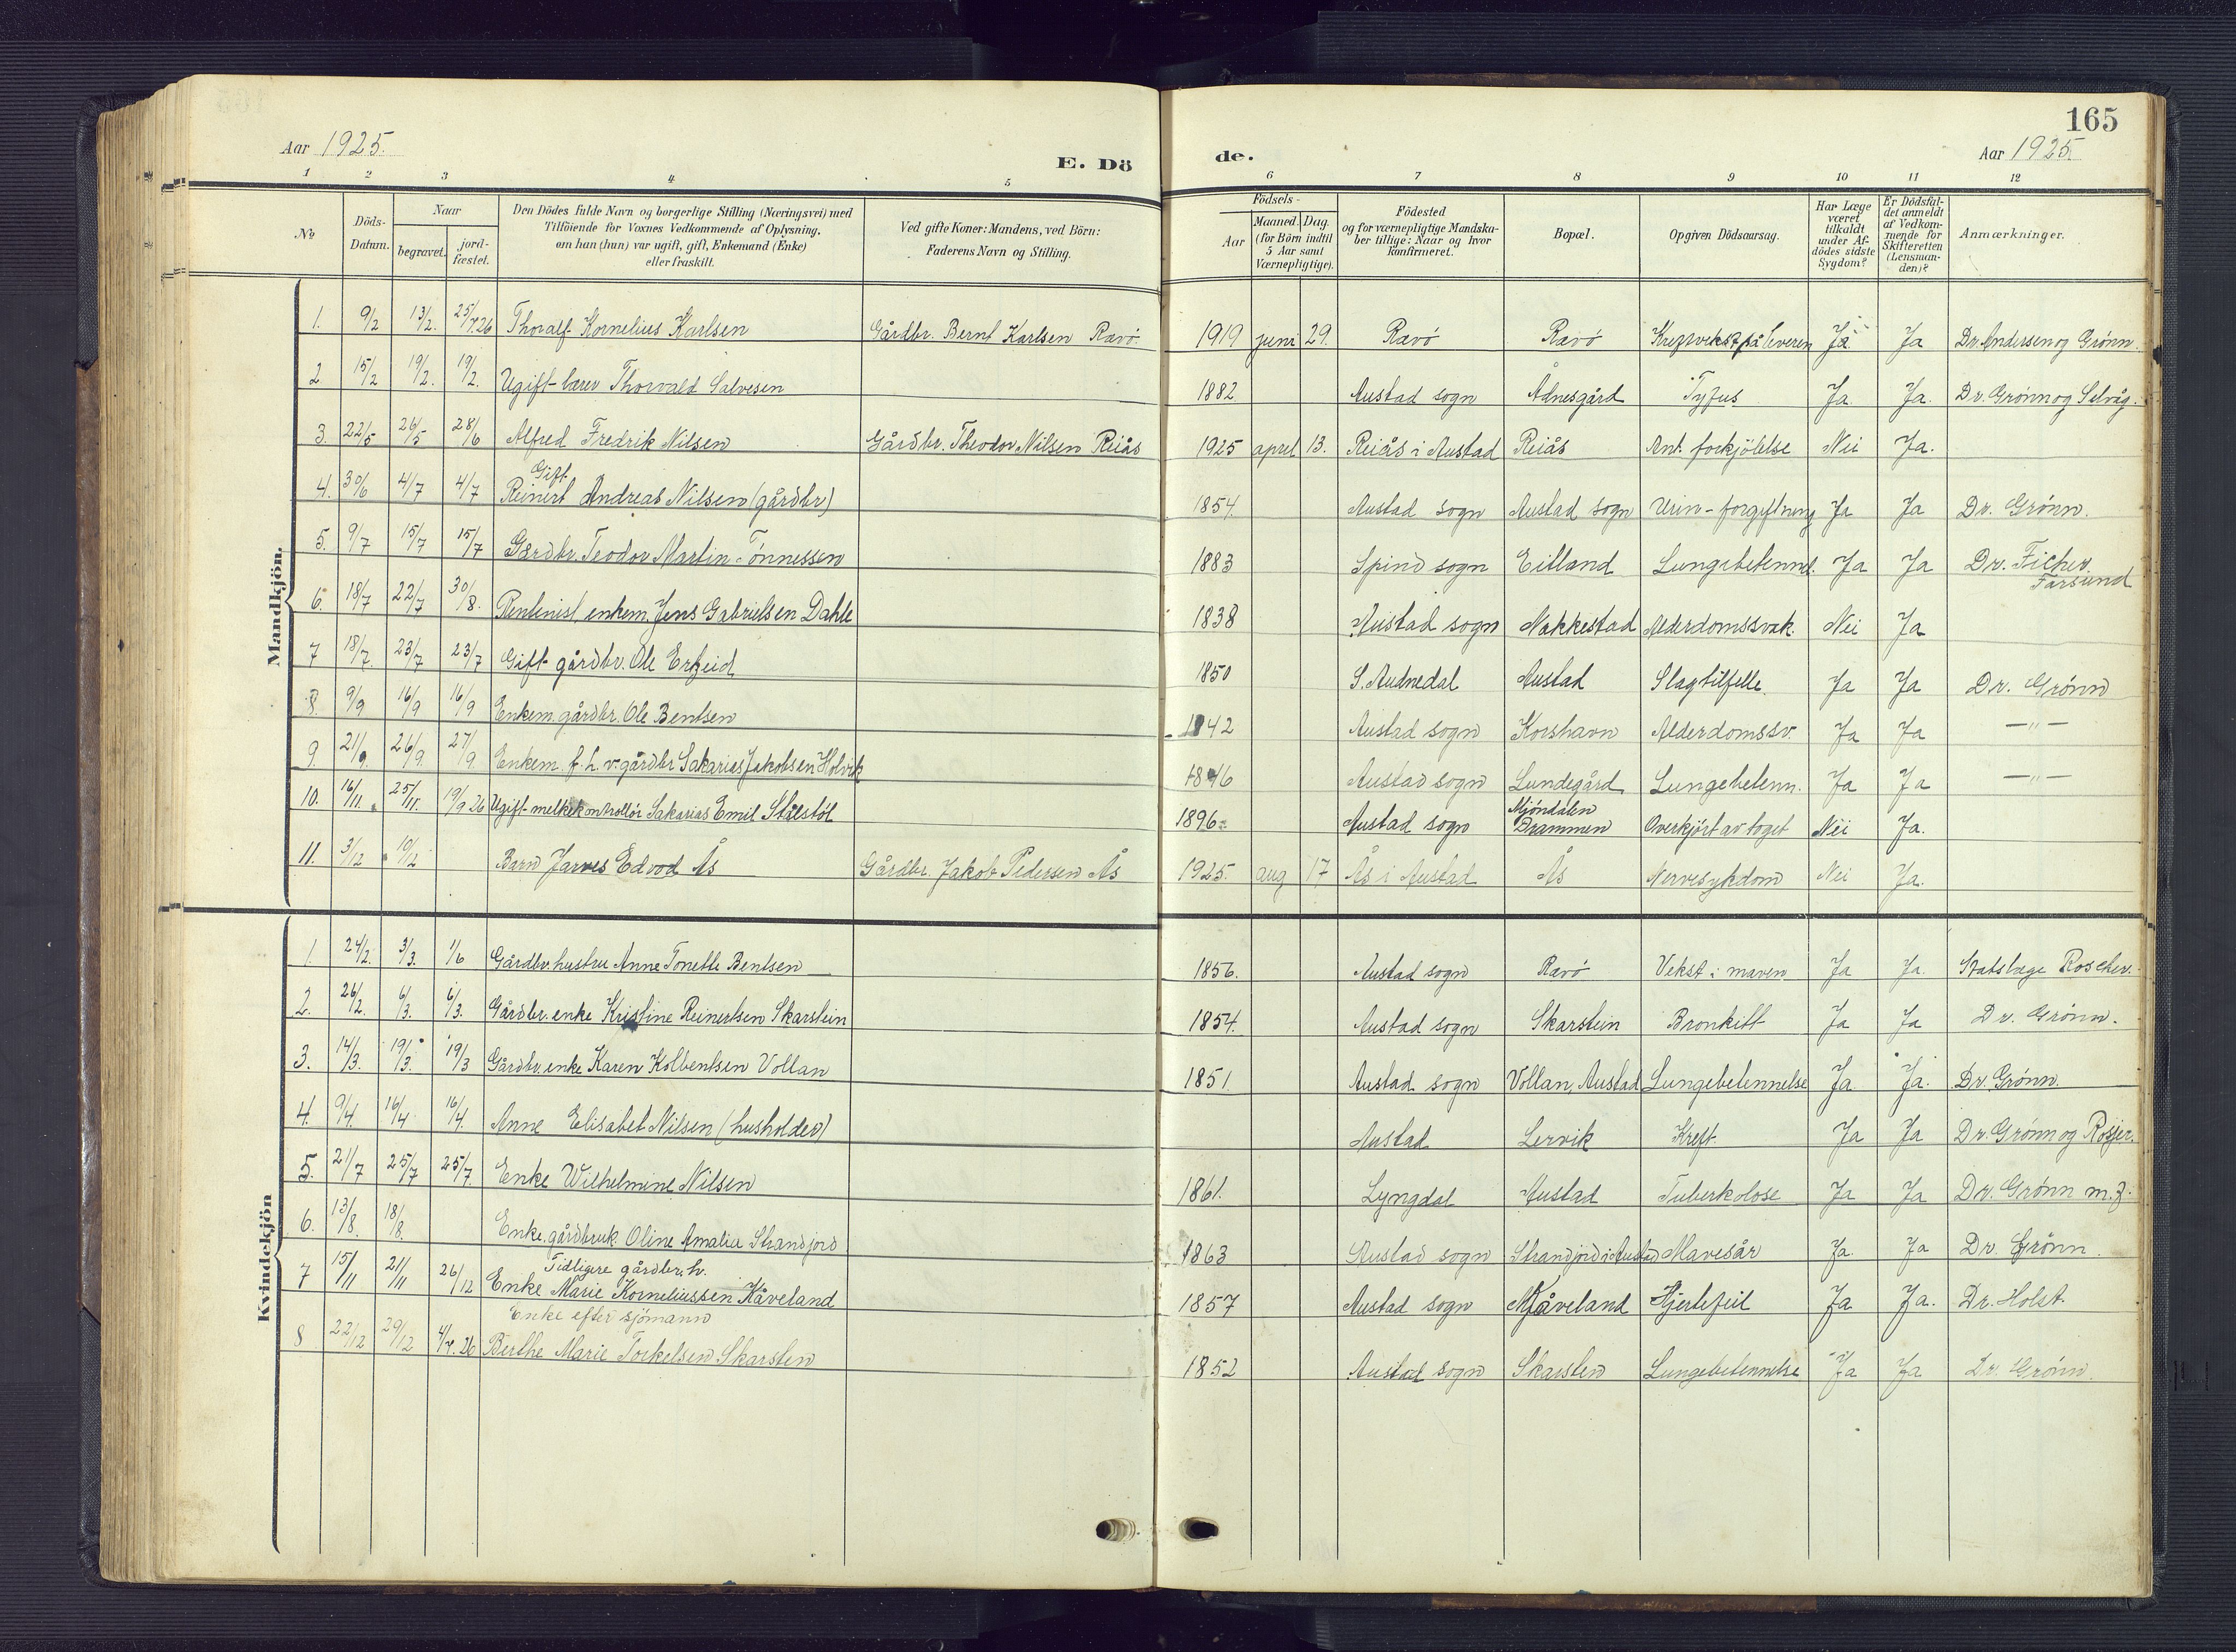 165
Aar 1925.
E. Dö
de.
Aar 1925.
1 2 3 4 5 6 7 8 9 10 11 12
No
Döds-Datum.
Naar
begravet.
jord-fæstet.
Den Dödes fulde Navn og borgerlige Stilling (Næringsvei) med
Tilföiende for Voxnes Vedkommende af Oplysning,
om han (hun) var ugift, gift, Enkemand (Enke)
eller fraskilt.
Ved gifte Koner: Mandens, ved Börn:
Faderens Navn og Stilling.
Födsels-
Aar
Maaned. Dag.
(for Börn indtil
5 Aar samt
Værnepligtige).
Födested
og for værnepligtige Mandska-
ber tillige: Naar og hvor
konfirmeret.
Bopæl.
Opgiven Dödsaarsag.
Har Læge
været
tilkaldt
under Af-
dödes sidste
Sygdom?
Er Dödsfal-
det anmeldt
af Vedkom-
mende for
Skifteretten
(Lensman-
den)?
Anmærkninger.
Mandkjön.
1. 9/2 13/2. 25/7.26 Thoralf Kornelius Karlsen Gårdbr. Bernt Karlsen Ravö. 1919 juni 29. Ravö Ravö på leveren Ja Ja Dr. Andersen og Grönn.
2 15/2 19/2. 19/2. Ugift Thorvald Salvesen 1882 Austad sogn Ådnesgård Tyfus Ja. Ja. Dr. Grönn og Selvåg.
3. 22/5 26/5 28/6 Alfred Fredrik Nilsen Gårdbr. Theodor Nilsen Reiås 1925 april 13. Reiås i Austad Reiås Ant. forkjölelse Nei Ja.
Gift
4. 30/6 4/7 4/7 Reinert Andreas Nilsen (gårdbr) 1854. Austad sogn Austad sogn Urin-forgiftning Ja Ja Dr. Grönn.
5. 9/7 15/7 15/7 Gårdbr. Teodor Martin Tönnessen 1883 Spind sogn Eitland Lungebetennel. Ja Ja Dr. Ficher
Farsund
6. 18/7 22/7 30/8. Rentenist, enkem. Jens Gabrielsen Dahle 1838 Austad sogn Nakkestad Alderdomssvak. Nei Ja
7 18/7. 23/7 23/7 Gift gårdbr. Ole Erfjeid 1850 S. Audnedal Austad Slagtilfelle. Ja Ja Dr. Grönn
8. 9/9 16/9 16/9 Enkem. gårdbr. Ole Bentsen 1842 Austad sogn Korshavn Alderdomssv. Ja Ja —"—
9. 21/9. 26/9. 27/9. Enkem. f. h. v. gårdbr Sakarias Jakobsen Holvik 1846 Austad sogn Lundegård Lungebetenn. Ja Ja —"—
Mjöndalen
10. 16/11. 25/11. 19/9 26 Ugift melkekontrollör Sakarias Emil Stålstöl 1896. Austad sogn Drammen Overkjört av toget Nei Ja.
11. 3/12 10/12 Barn Edvod Ås Gårdbr. Jakob Pedersen Ås 1925. aug 17 Ås i Austad Ås Nervesykdom Nei Ja.
Kvindekjön
1. 24/2. 3/3. 1/6 Gårdbr. hustru Anne Tonette Bentsen 1856. Austad sogn Ravö Vekst i maven Ja Ja. Statslæge Roscher.
2. 26/2. 6/3. 6/3. Gårdbr. enke Kristine Reinertsen Skarstein 1854. Austad sogn Skarstein Bronkitt Ja Ja Dr. Grönn.
3. 14/3. 19/3. 19/3 Gårdbr. enke Karen Kolbentsen Vollan 1851. Austad sogn Vollan, Austad Lungebetennelse Ja Ja. Dr. Grönn.
4. 9/4. 16/4 16/4. Anne Elisabet Nilsen (husholder) Austad Lervik Kreft Ja Ja Dr. Grönn og
5. 21/7 25/7 25/7. Enke Wilhelmine Nilsen 1861. Lyngdal Austad Tuberkolose Ja Ja Dr. Grönn m.fl.
6. 13/8. 18/8. Enke. gårdbruk. Oline Amalia Strandjord 1863 Austad sogn Strandjord i Austad Mavesår Ja. Ja Dr. Grönn.
Tidligere gårdbr. h.
7 15/11 21/11 26/12 Enke Marie Korneliussen Kåveland 1857 Austad sogn Kåveland Hjertefeil Ja Ja. Dr. Holst.
Enke efter sjömann
8 22/12 29/12 4/7.26 Berthe Marie Torkelsen Skarsten 1852 Austad sogn Skarsten Lungebetennelse Ja Ja Dr. Grönn.